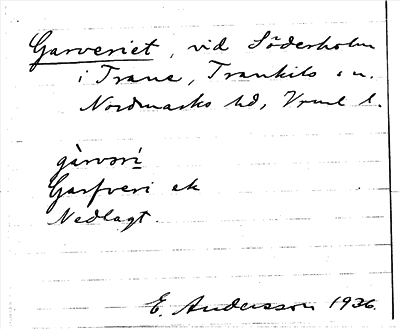 Garveriet, vid Söderholm
i Trane, Trankils sn.
Nordmarks hd, Vrml l.
gàrvərí
Garfveri ek
Nedlagt.
E. Andersson 1936.